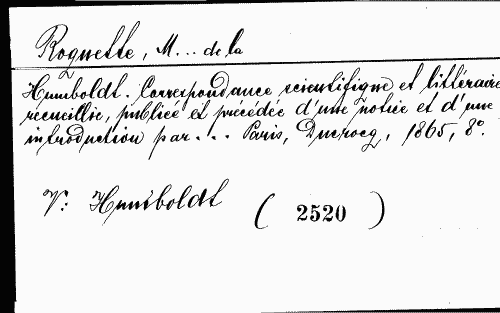 Roquette, M... de la
Humboldt. Correspondance scientifique et littéraire
recueillie, publiée et précédée d'une notice et d'une
introduction par... Paris, Ducrocq, 1865, 8°.
V: Humboldt ( 2520 )